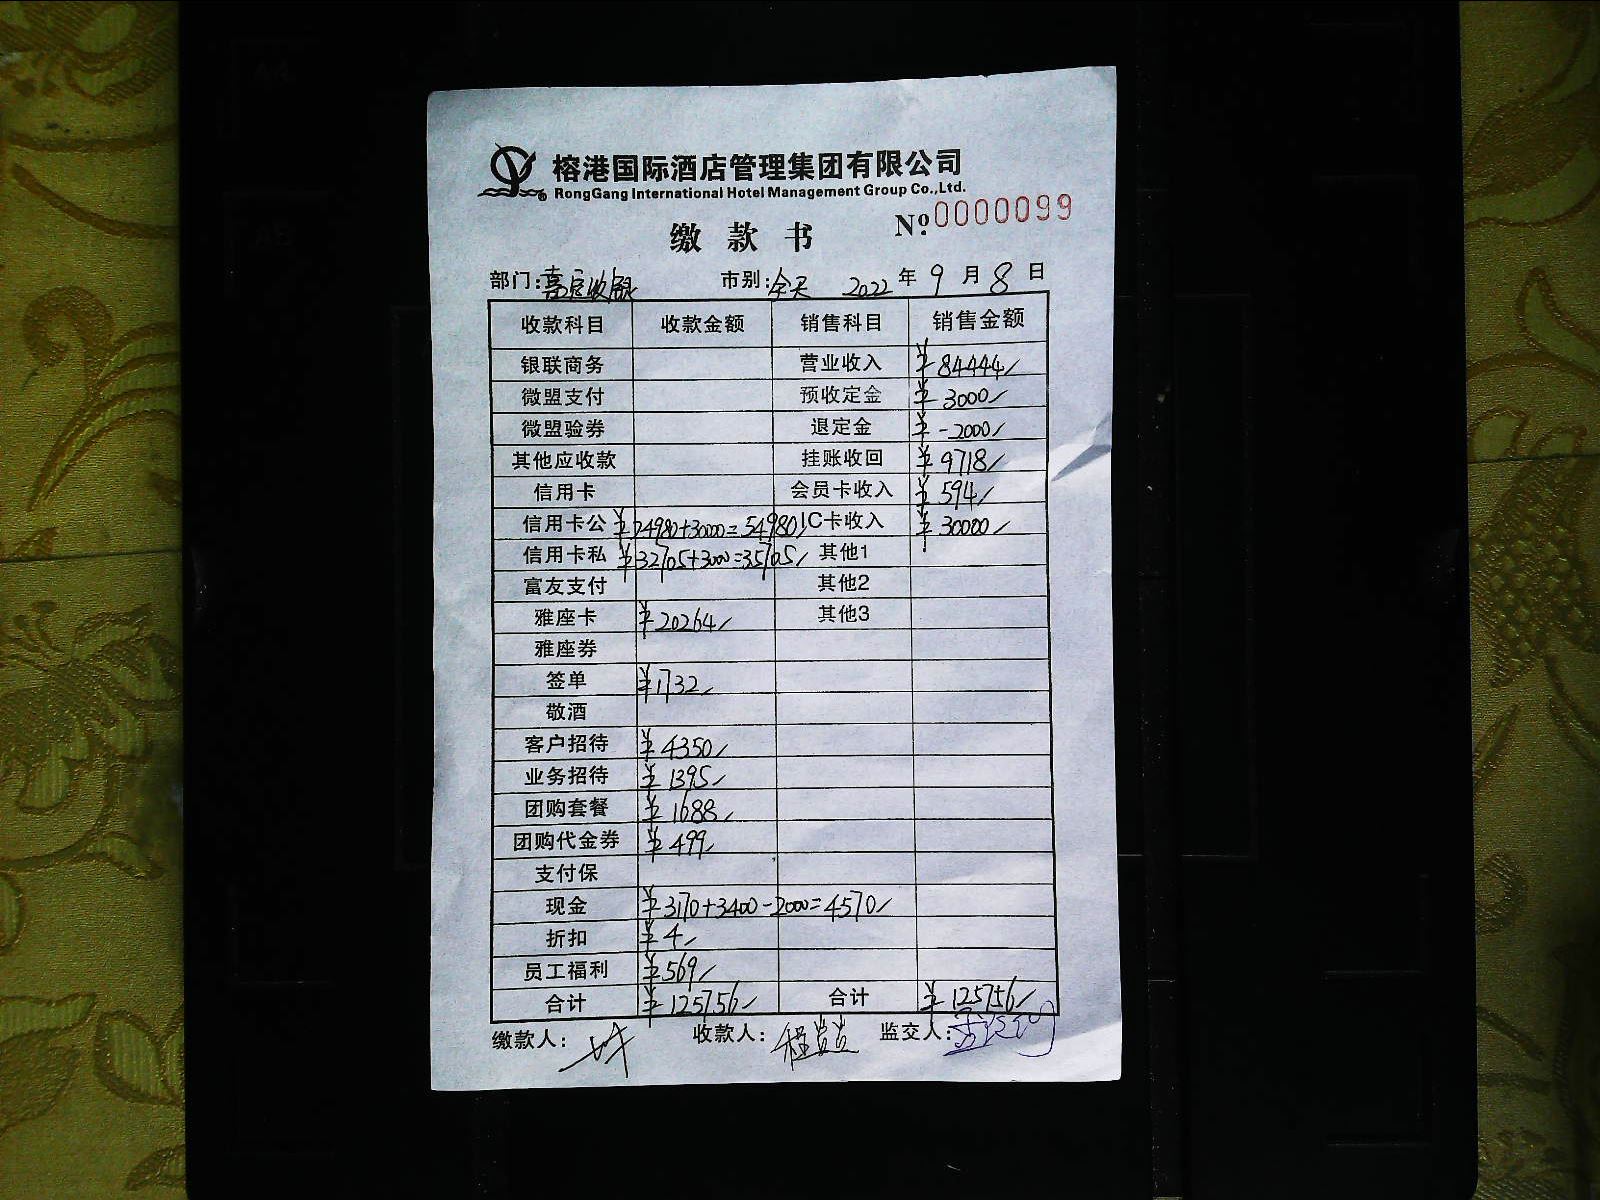 榕港国际酒店管理集团有限公司
RongGang International Hotel Management Group Co.,Ltd.
缴款书 Nº.0000099
部门: 市别:今天 2022年9月8日
收款科目 收款金额 销售科目 销售金额
银联商务 营业收入 ¥84444/
微盟支付 预收定金 ¥3000/
微盟验券 退定金 ¥-2000/
其他应收款 挂账收回 ¥9718/
信用卡 会员卡收入 ¥594/
信用卡公 ¥24980+30000=54980/ IC卡收入 ¥30000/
信用卡私 ¥32705+3000=35705/ 其他1
富友支付 其他2
雅座卡 ¥20264/ 其他3
雅座券
签单 ¥1732/
敬酒
客户招待 ¥4350/
业务招待 ¥1395/
团购套餐 ¥1688/
团购代金券 ¥499/
支付保
现金 ¥3170+3400-2000=4570/
折扣 ¥4/
员工福利 ¥569/
合计 ¥125756/ 合计 ¥125756/
缴款人: 收款人:程益益 监交人: